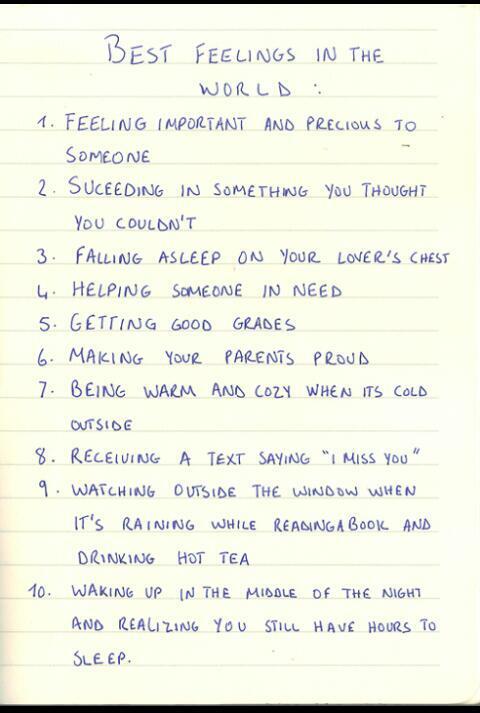 BEST FEELINGS IN THE
WORLD :
1. FEELING IMPORTANT AND PRECIOUS TO
SOMEONE
2. SUCEEDING IN SOMETHING YOU THOUGHT
YOU COULDN'T
3. FALLING ASLEEP ON YOUR LOVER'S CHEST
4. HELPING SOMEONE IN NEED
5. GETTING GOOD GRADES
6. MAKING YOUR PARENTS PROUD
7. BEING WARM AND COZY WHEN ITS COLD
OUTSIDE
8. RECEIVING A TEXT SAYING "I MISS YOU"
9. WATCHING OUTSIDE THE WINDOW WHEN
IT'S RAINING WHILE READINGABOOK AND
DRINKING HOT TEA
10. WAKING UP IN THE MIDDLE OF THE NIGHT
AND REALIZING YOU STILL HAVE HOURS TO
SLEEP.